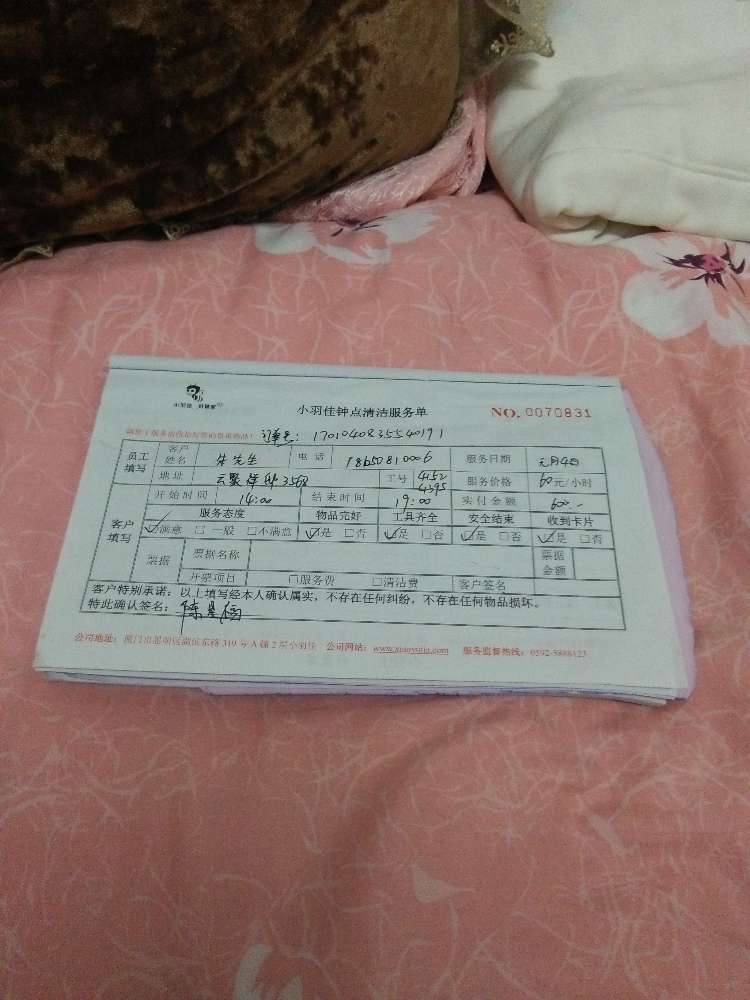 小羽佳 好管家
小羽佳钟点清洁服务单
NO. 0070831
订单号: 1701040835540191
员工填写 客户姓名 朱先生 电话 18650810006 服务日期 元月4日
地址 356 工号 4152 4395 服务价格 60元/小时
开始时间 14:00 结束时间 19:00 实付金额 600.-
客户填写 服务态度 物品完好 工具齐全 安全结束 收到卡片
☑满意 □一般 □不满意 ☑是 □否 ☑是 □否 ☑是 □否 ☑是 □否
票据 票据名称 票据金额
开票项目 □服务费 □清洁费 客户签名
客户特别承诺:以上填写经本人确认属实,不存在任何纠纷,不存在任何物品损坏。
特此确认签名:
公司地址:厦门市思明区湖滨东路319号A幢2层小羽佳 公司网站:www.xiaoyujia.com 服务监督热线:0592-5888123